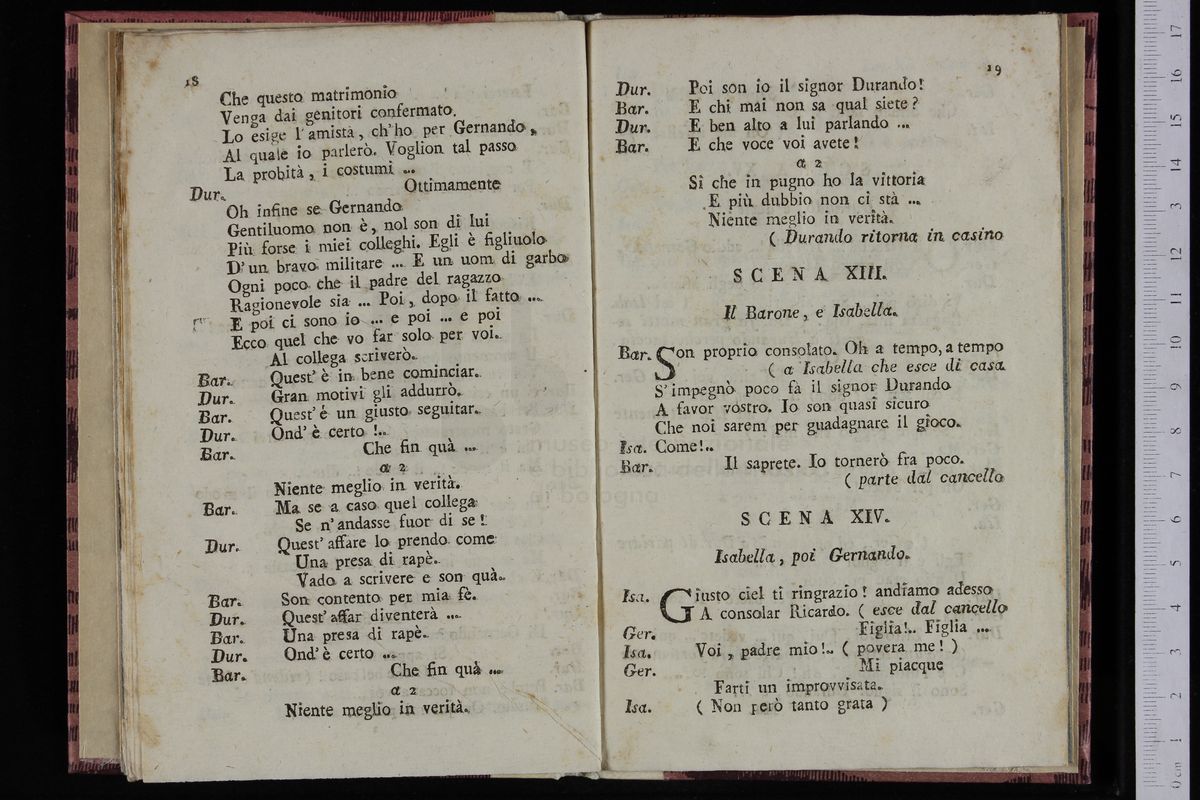 18
Che questo matrimonio
Venga dai genitori confermato.
Lo esige l'amistà, ch'ho per Gernando,
Al quale io parlerò. Voglion tal passo
La probità, i costumi ...
Dur. Ottimamente
Oh infine se Gernando
Gentiluomo non è, nol son di lui
Più forse i miei colleghi. Egli è figliuolo
D'un bravo militare ... E un uom di garbo
Ogni poco che il padre del ragazzo
Ragionevole sia ... Poi, dopo il fatto ...
E poi ci sono io ... e poi ... e poi
Ecco quel che vo far solo per voi.
Al collega scriverò.
Bar. Quest'è in bene cominciar.
Dur. Gran motivi gli addurrò.
Bar. Quest'è un giusto seguitar.
Dur. Ond'è certo !..
Bar. Che fin quà ...
a 2
Niente meglio in verità.
Bar. Ma se a caso quel collega
Se n'andasse fuor di se!
Dur. Quest'affare lo prendo come
Una presa di rapè.
Vado a scrivere e son quà.
Bar. Son contento per mia fè.
Dur. Quest'affar diventerà ...
Bar. Una presa di rapè.
Dur. Ond'è certo ...
Bar. Che fin quà ...
a 2
Niente meglio in verità.
19
Dur. Poi son io il signor Durando!
Bar. E chi mai non sa qual siete?
Dur. E ben alto a lui parlando ...
Bar. E che voce voi avete!
a 2
Sì che in pugno ho la vittoria
E più dubbio non ci stà ...
Niente meglio in verità.
( Durando ritorna in casino
SCENA XIII.
Il Barone, e Isabella.
Bar. Son proprio consolato. Oh a tempo, a tempo
( a Isabella che esce di casa
S'impegnò poco fa il signor Durando
A favor vostro. Io son quasi sicuro
Che noi sarem per guadagnare il gioco.
Isa. Come!..
Bar. Il saprete. Io tornerò fra poco.
( parte dal cancello
SCENA XIV.
Isabella, poi Gernando.
Isa. Giusto ciel ti ringrazio! andiamo adesso
A consolar Ricardo. ( esce dal cancello
Ger. Figlia!.. Figlia ...
Isa. Voi, padre mio!.. ( povera me! )
Ger. Mi piacque
Farti un improvvisata.
Isa. ( Non però tanto grata )
0 cm 1 2 3 4 5 6 7 8 9 10 11 12 13 14 15 16 17